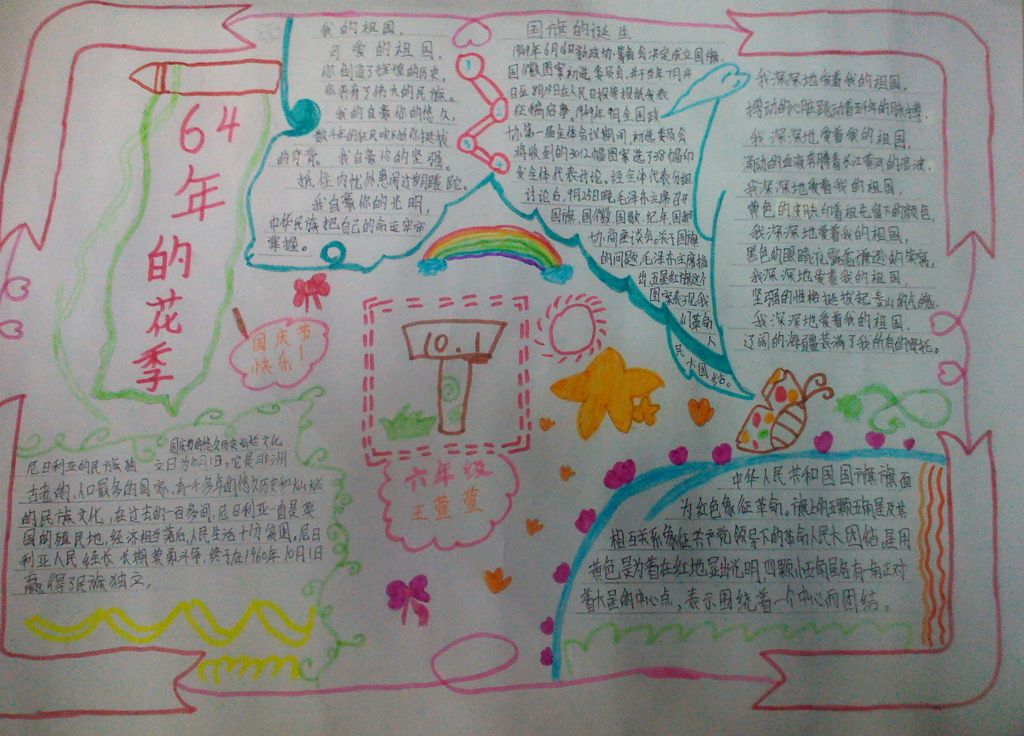 64年的花季
我的祖国,
可爱的祖国,
你创造了辉煌的历史,
你养育了伟大的民族。
我自豪你的悠久,
我自豪你的坚强。
抵住内忧外患闯过岁月蹉跎。
我自豪你的光明,
中华民族把自己的命运牢牢
掌握。
国旗的诞生
国徽图案初选委员会,并于当年7月14
日至8月15日在人民日报等报纸发表
征稿启事,1949年9月全国政
协第一届全体会议期间,初选委员会
将收到的3012幅图案选了38幅印
发全体代表讨论。经全体代表分组
讨论后,9月25日晚,毛泽东主席召开
国旗,国徽,国歌,纪年,国都
协商座谈会。关于国旗
的问题,毛泽东主席指
出:五星红旗这个
图案表现我
们革命
人
民
大团结。
我深深地爱着我的祖国,
搏动的心脏跳动着五千年的脉搏,
我深深地爱着我的祖国,
涌动的血液奔腾着长江黄河的浪波,
我深深地爱着我的祖国,
黄色的皮肤印着祖先留下的颜色,
我深深地爱着我的祖国,
我深深地爱着我的祖国,
我深深地爱着我的祖国,
辽阔的海疆装满了我所有的寄托。
国庆节
快乐!
10.1
六年级
王萱萱
尼日利亚的民族独
立日为10月1日。它是非洲
古老的、人口最多的国家,有一千多年的悠久历史和灿烂
的民族文化,在过去的一百多间,尼日利亚一直是英
国的殖民地,经济相当落后,人民生活十分贫困,尼日
利亚人民经长长期英勇斗争,终于在1960年10月1日
赢得了民族独立。
中华人民共和国国旗旗面
为红色象征革命。旗上的五颗五角星及其
相互关系象征共产党领导下的革命人民大团结,星用
黄色是为着在红地显出光明,四颗小五角星各有一角正对
着大星的中心点,表示围绕着一个中心而团结。